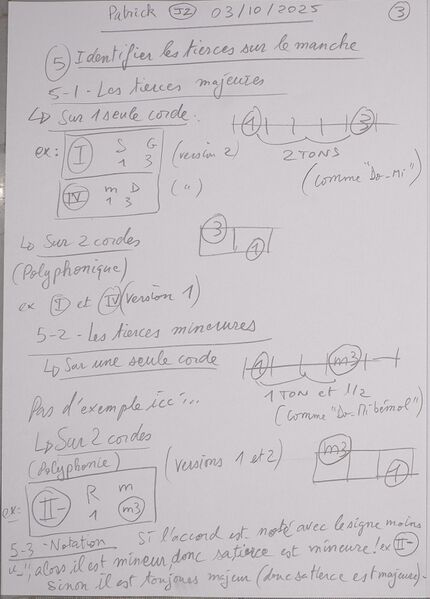 Patrick J2 03/10/2025 3
5 Identifier les tierces sur le manche
5-1 - Les tierces majeures
↳ Sur 1 seule corde : 1 3
ex: I S G (version 2) 2 TONS
1 3
IV m D (") (comme "Do-Mi")
1 3
↳ Sur 2 cordes 3
(Polyphonique) 1
ex I et IV (version 1)
5-2 - Les tierces mineures
↳ Sur une seule corde 1 m3
1 TON et 1/2
Pas d'exemple ici... (comme "Do-Mi bémol")
↳ Sur 2 cordes m3
(Polyphonie) (versions 1 et 2) 1
ex: II- R m
1 m3
5-3 - Notation Si l'accord est noté avec le signe moins
"-", alors il est mineur, donc sa tierce est mineure! ex II-
Sinon il est toujours majeur (donc sa tierce est majeure).